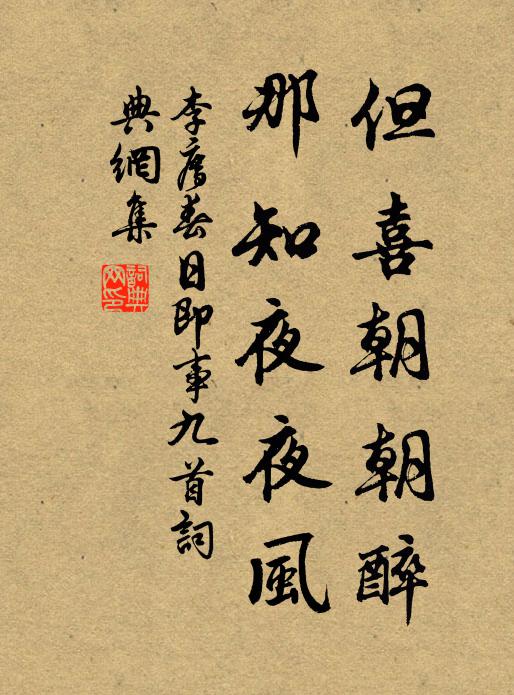 但喜朝朝醉
那知夜夜風
李廌春日即事九首詞
典網集
詞典網印